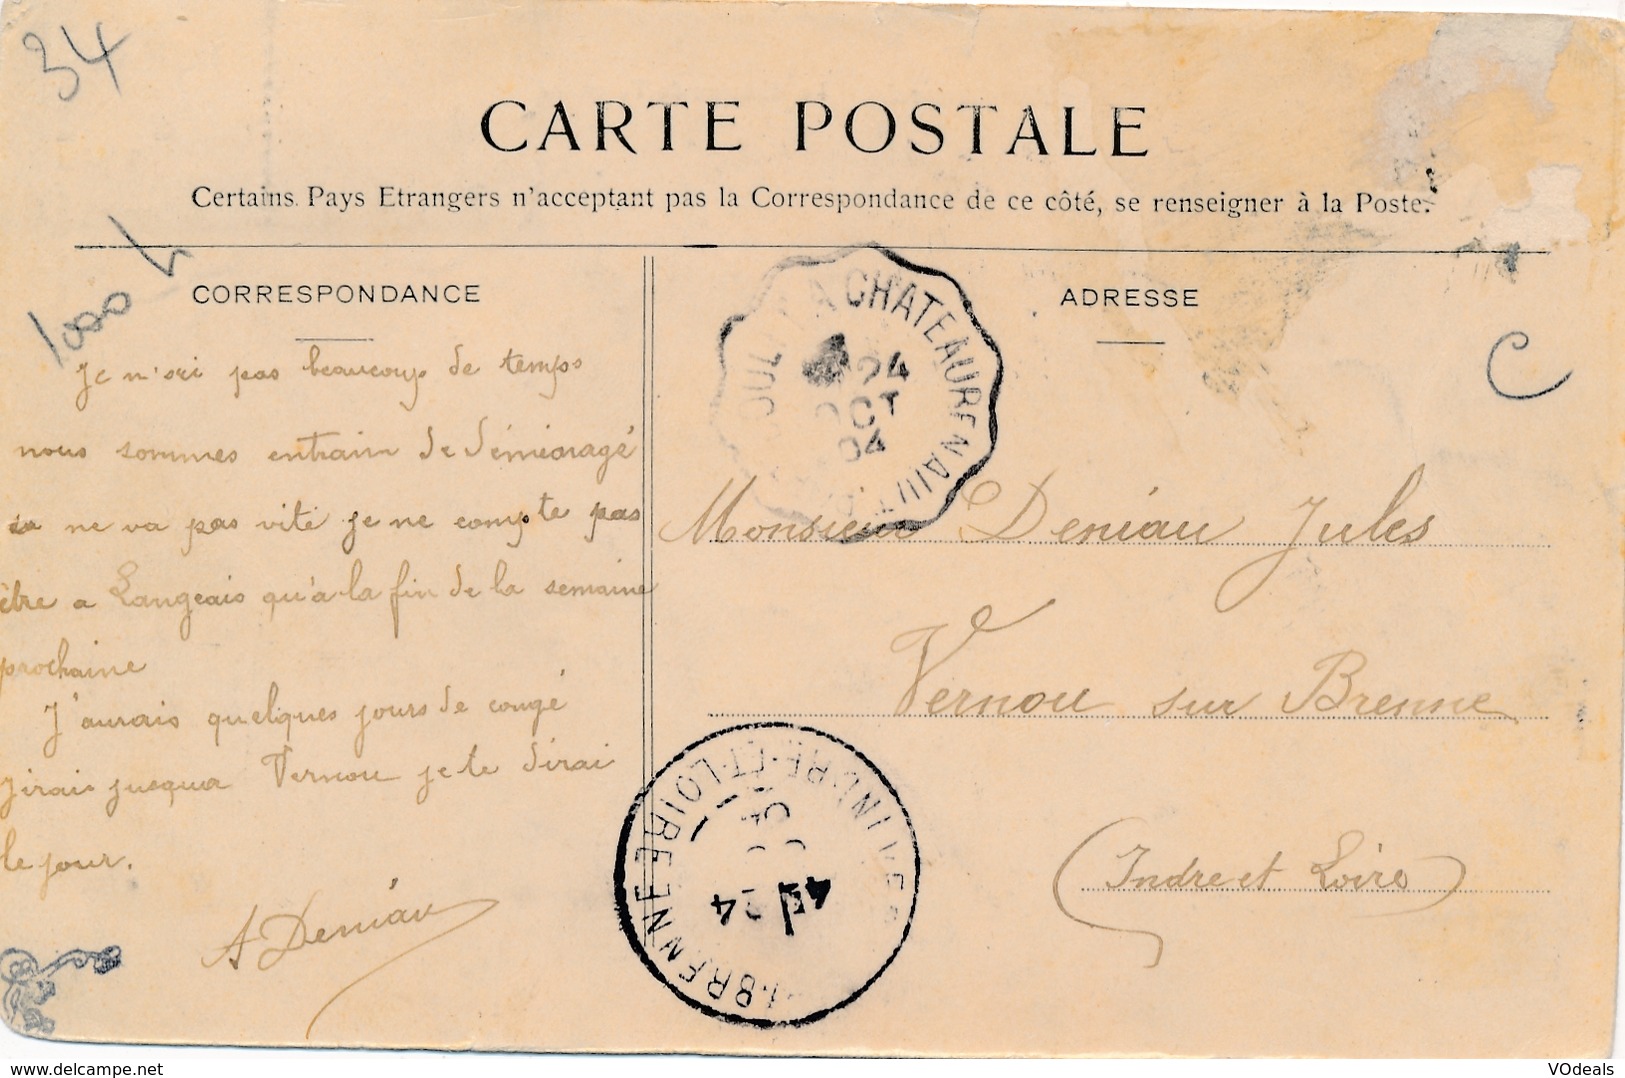 34
CARTE POSTALE
Certains Pays Etrangers n'acceptent pas la Correspondance de ce côté, se renseigner à la Poste.
CORRESPONDANCE
ADRESSE
1000
C
A CHATEAURENAULT
24
OCT
04
Je n'ai pas beaucoup de temps
nous sommes entrain de déménagé
ça ne va pas vite je ne compte pas
être a Langeais qu'a la fin de la semaine
prochaine
J'aurais quelques jours de congé
j'irais jusqua Vernou je te dirai
le jour.
A Deniau
Monsieur Deniau Jules
Vernou sur Brenne
(Indre et Loire)
S-BRENNE INDRE-ET-LOIRE
24
04
www.delcampe.net
VOdeals